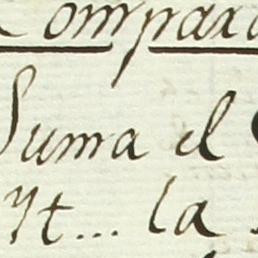 Compara
Suma el
Yt... la